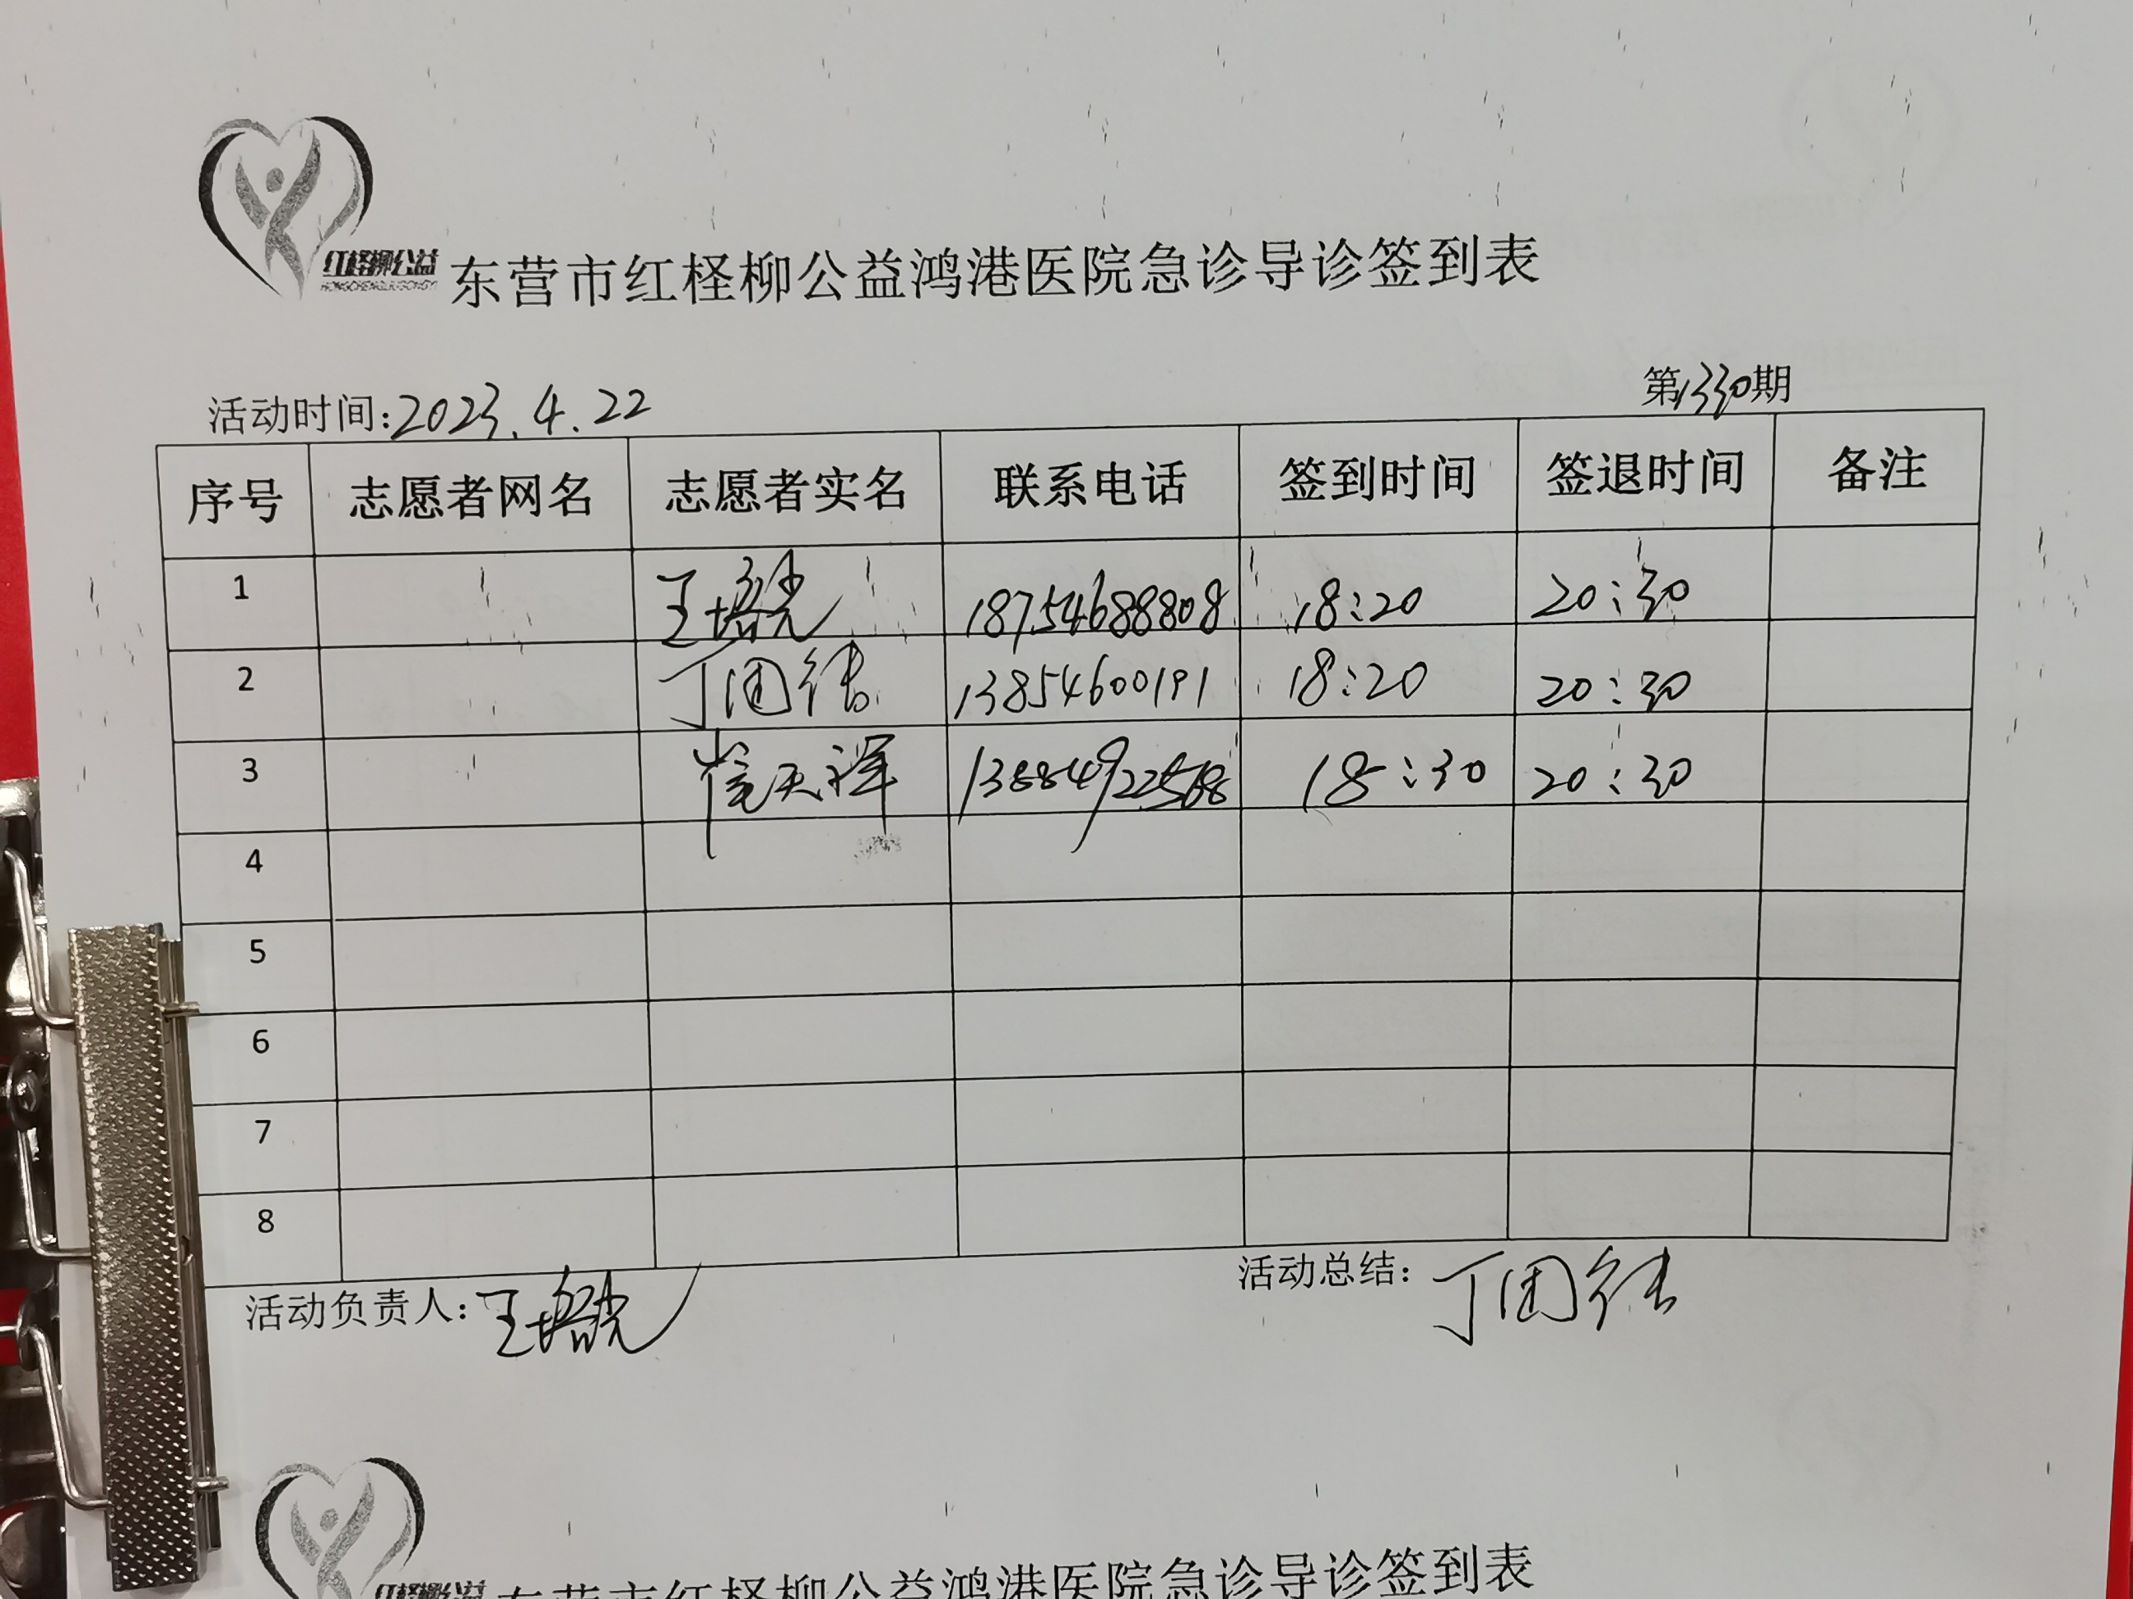 红柽柳公益
东营市红柽柳公益鸿港医院急诊导诊签到表
活动时间:2023.4.22 第1330期
序号 志愿者网名 志愿者实名 联系电话 签到时间 签退时间 备注
1 王培光 18754688808 18:20 20:30
2 丁国伟 13854600191 18:20 20:30
3 崔天祥 18:30 20:30
4
5
6
7
8
活动负责人:王培光 活动总结:丁国伟
红柽柳公益
东营市红柽柳公益鸿港医院急诊导诊签到表